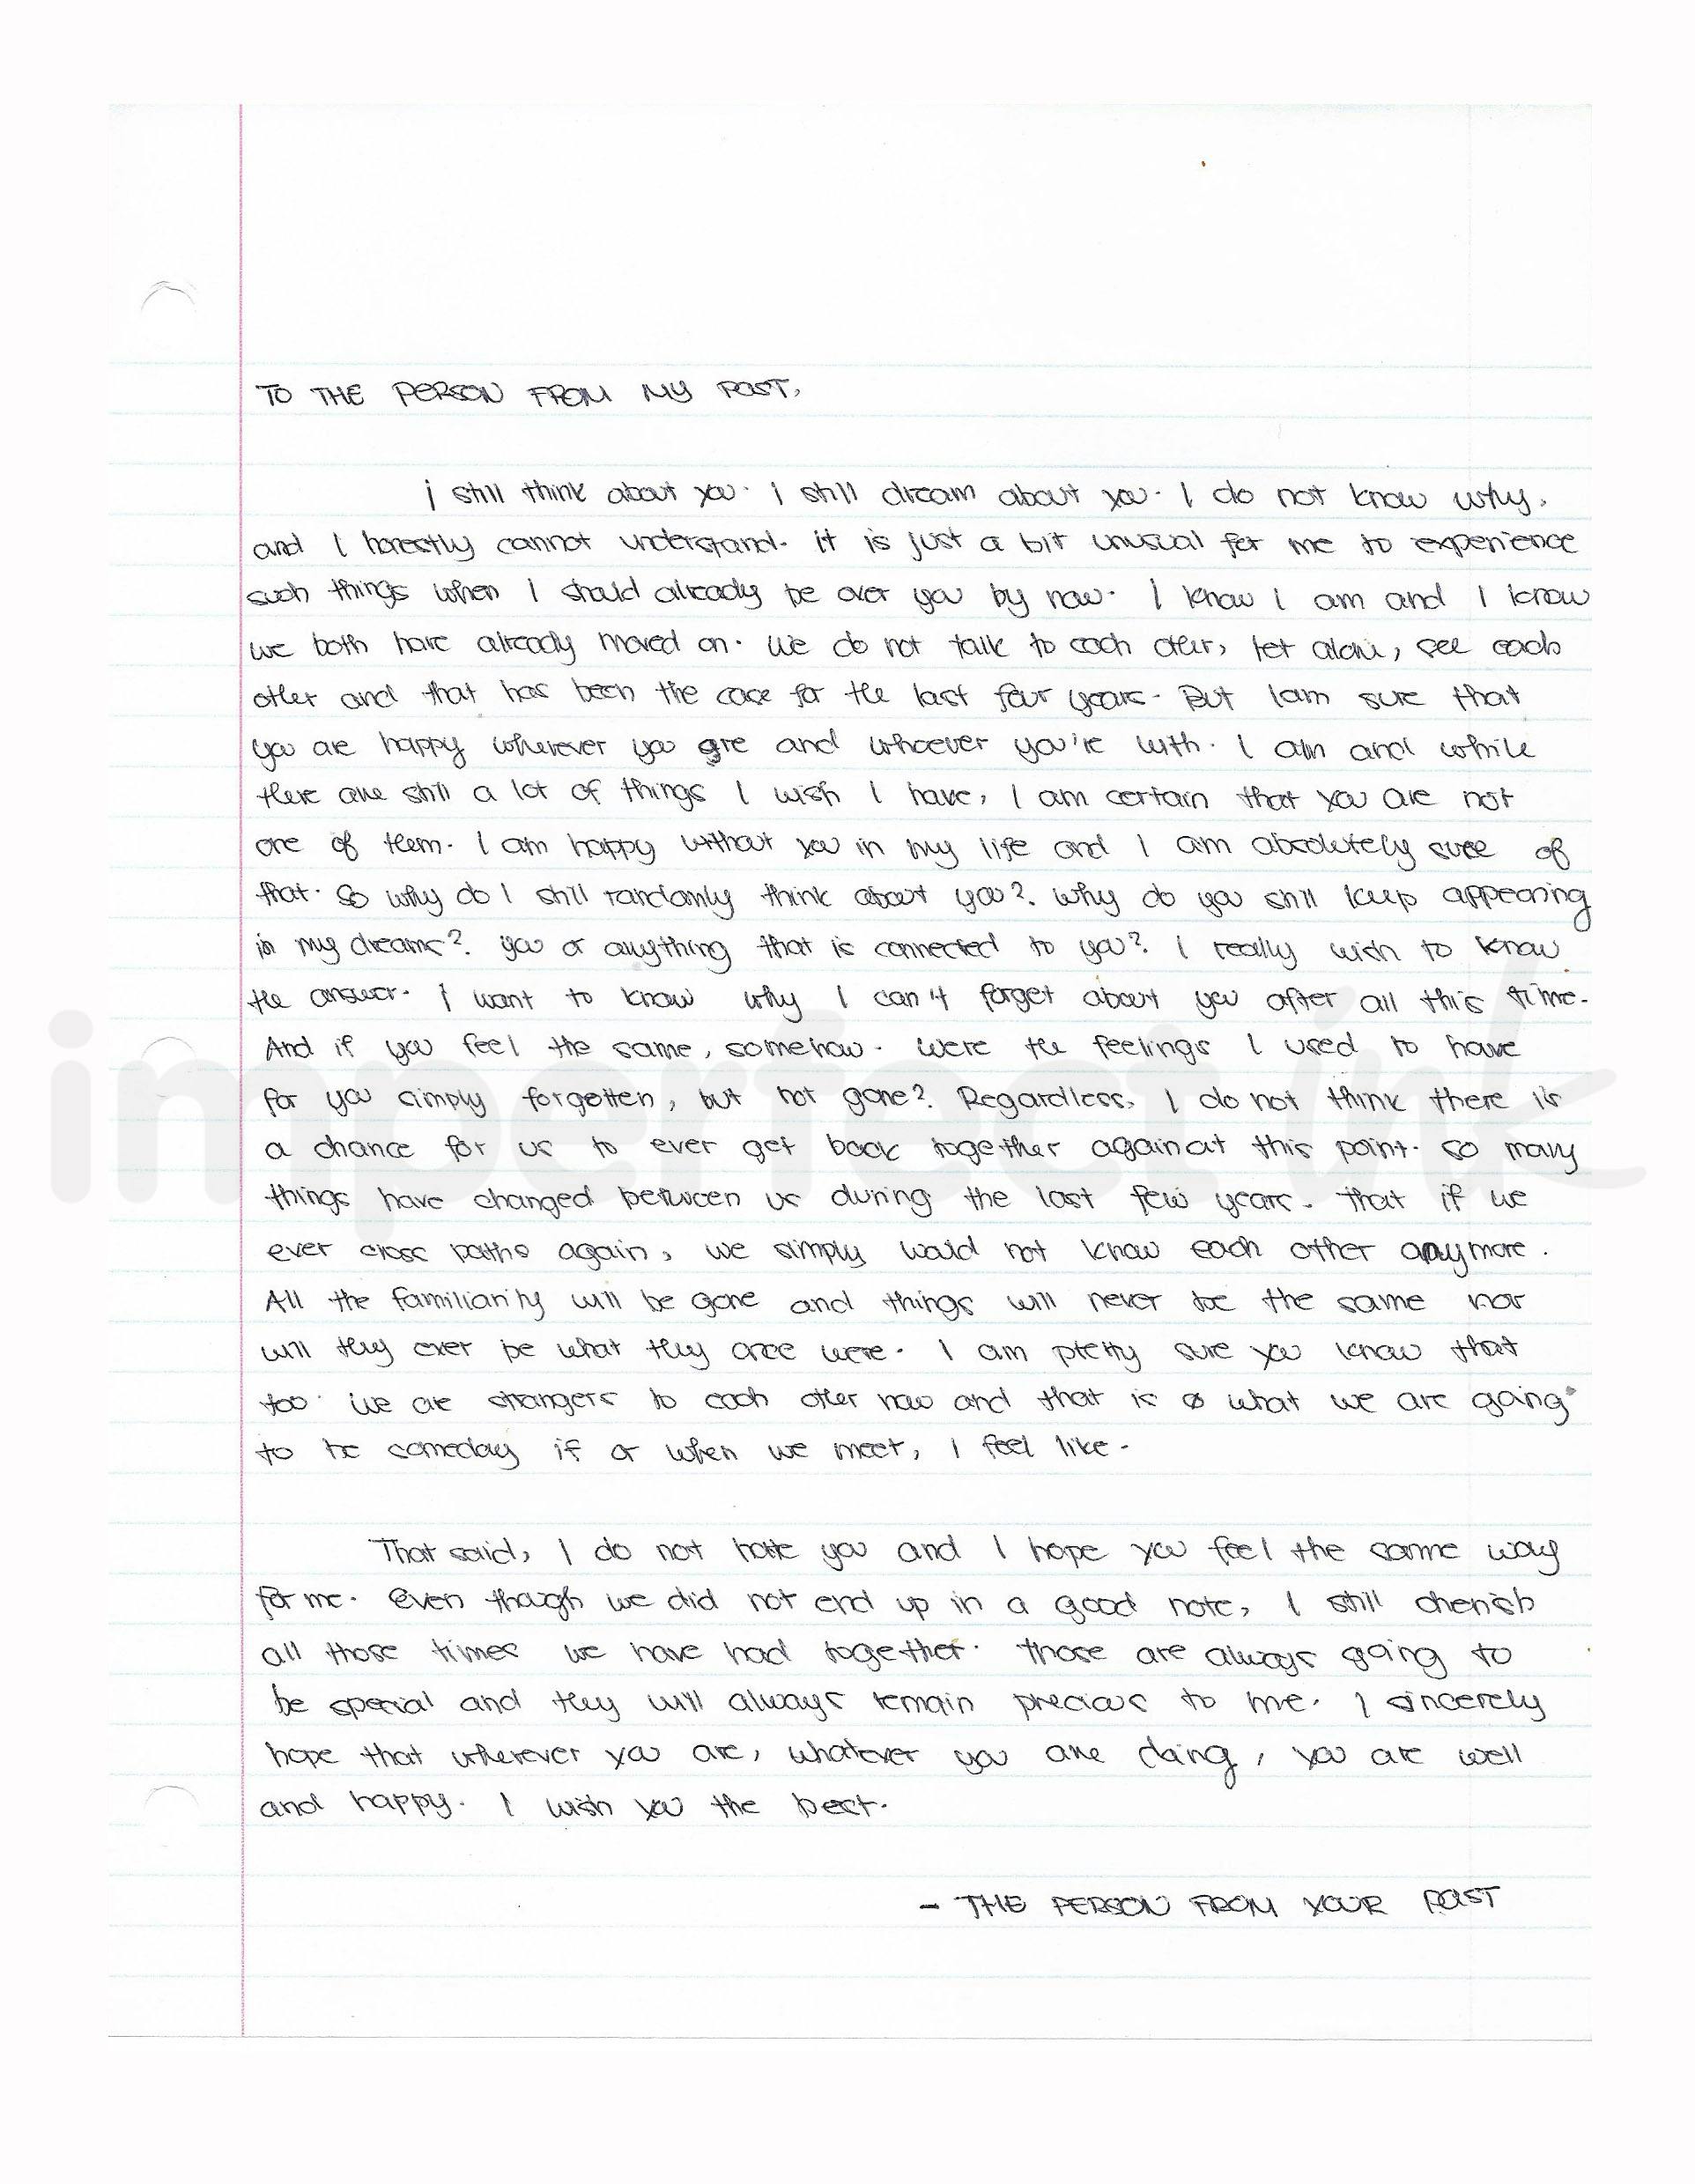 TO THE PERSON FROM MY PAST,
i still think about you. i still dream about you. I do not know why,
and I honestly cannot understand. it is just a bit unusual for me to experience
such things when I should already be over you by now. I know I am and I know
we both have already moved on. We do not talk to each other, let alone, see each
other and that has been the case for the last four years. But I am sure that
you are happy wherever you are and whoever you're with. I am and while
there are still a lot of things I wish I have, I am certain that you are not
one of them. I am happy without you in my life and I am absolutely sure of
that. So why do I still randomly think about you?. Why do you still keep appearing
in my dreams?. you or anything that is connected to you?. I really wish to know
the answer. I want to know why I can't forget about you after all this time.
And if you feel the same, somehow. Were the feelings I used to have
for you simply forgotten, but not gone?. Regardless, I do not think there is
a chance for us to ever get back together again at this point. So many
things have changed between us during the last few years. That if we
ever cross paths again, we simply would not know each other anymore.
All the familiarity will be gone and things will never be the same nor
will they ever be what they once were. I am pretty sure you know that
too. We are strangers to each other now and that is what we are going
to be someday if or when we meet, I feel like.
That said, I do not hate you and I hope you feel the same way
for me. Even though we did not end up in a good note, I still cherish
all those times we have had together. Those are always going to
be special and they will always remain precious to me. I sincerely
hope that wherever you are, whatever you are doing, you are well
and happy. I wish you the best.
- THE PERSON FROM YOUR PAST
imperfect ink